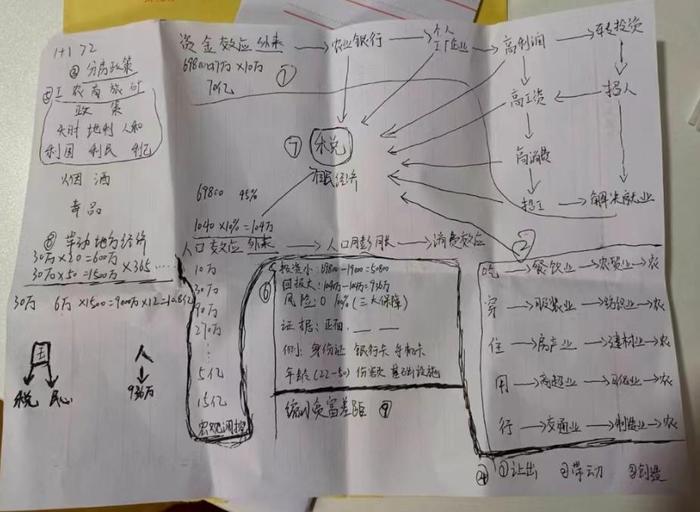 1+1>2
② 分房政策
③ 工 农 商 旅 矿
政 策
天时 地利 人和
利国 利民 利己
烟 酒
奇品
⑧ 带动地方经济
30万×20=600万
30万×50=1500万 ×365 ....
30万 6万×1500=9000万×12=10.8亿
国
税 民心
人
936万
资金效应 外来 → 农业银行 → 个人 工厂企业 → 高利润 → 转投资
69800×1万×10万
70亿
①
高工资
招人
高消费
招工
解决就业
⑦ 税
69800 45%
国民经济
1040×10%=104万
人口效应 外来 → 人口膨胀 → 消费效应
②
10万
30万
90万
270万
⋮
5亿
15亿
宏观调控
⑥
投资小:69800-19000=50800
回报大:1040万-104万=936万
风险:0 10% (三大保障)
证据:正面.
例:身份证 银行卡 手机卡
年龄(22-50) 份
缩小贫富差距 ⑨
吃 → 餐饮业 → 农贸业 → 农
穿 → 服装业 → 纺织业 → 农
住 → 房产业 → 建材业 → 农
用 → 商超业 → 农
行 → 交通业 → 制造业 → 农
④ ①让出 ②带动 ③创造